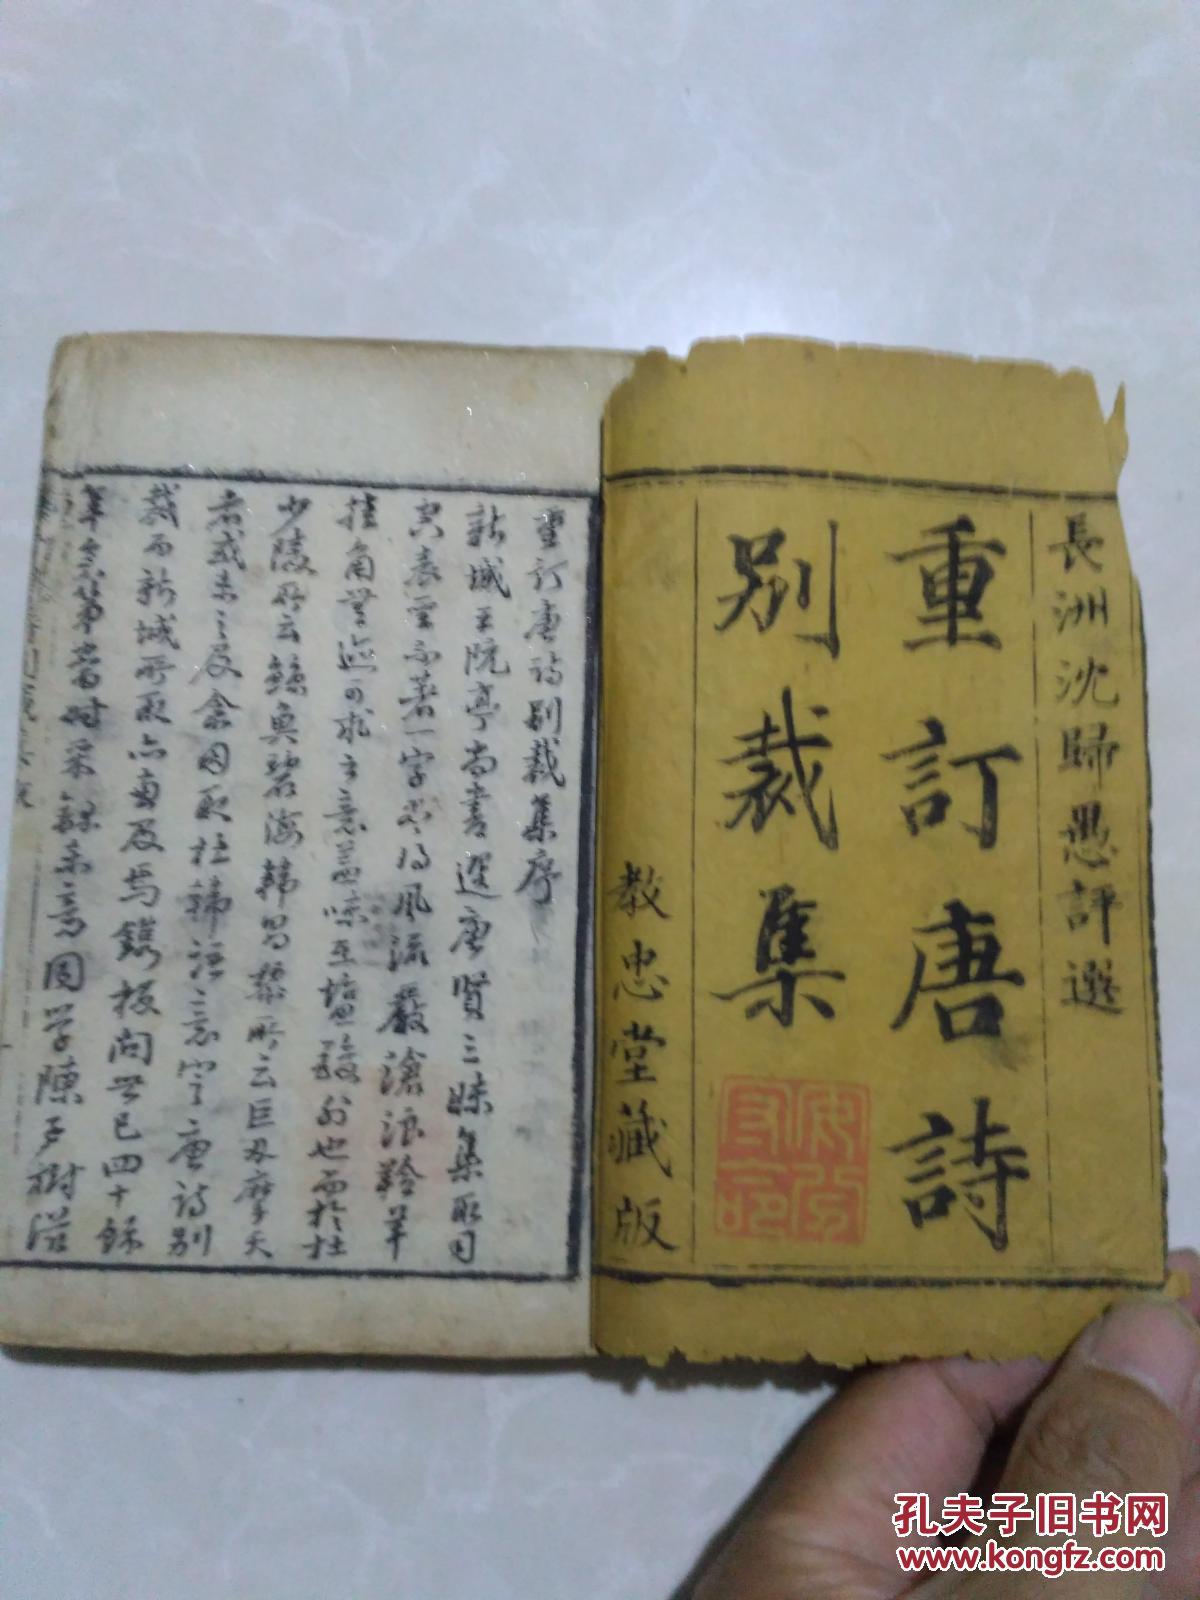 長洲沈歸愚評選
重訂唐詩
別裁集
教忠堂藏版
重訂唐詩別裁集序
新城王阮亭尚書選唐賢三昧集取司
空表聖不著一字盡得風流嚴滄浪羚羊
挂角無迹可求之意蓋味在鹽酸外也而於杜
少陵所云鯨魚碧海韓昌黎所云巨刃摩天
者或未之及余因取杜韓語意定唐詩別
裁而新城所取亦兼及焉鐫板問世已四十餘
年矣第當時采錄未竟同學陳子樹滋
孔夫子旧书网
www.kongfz.com